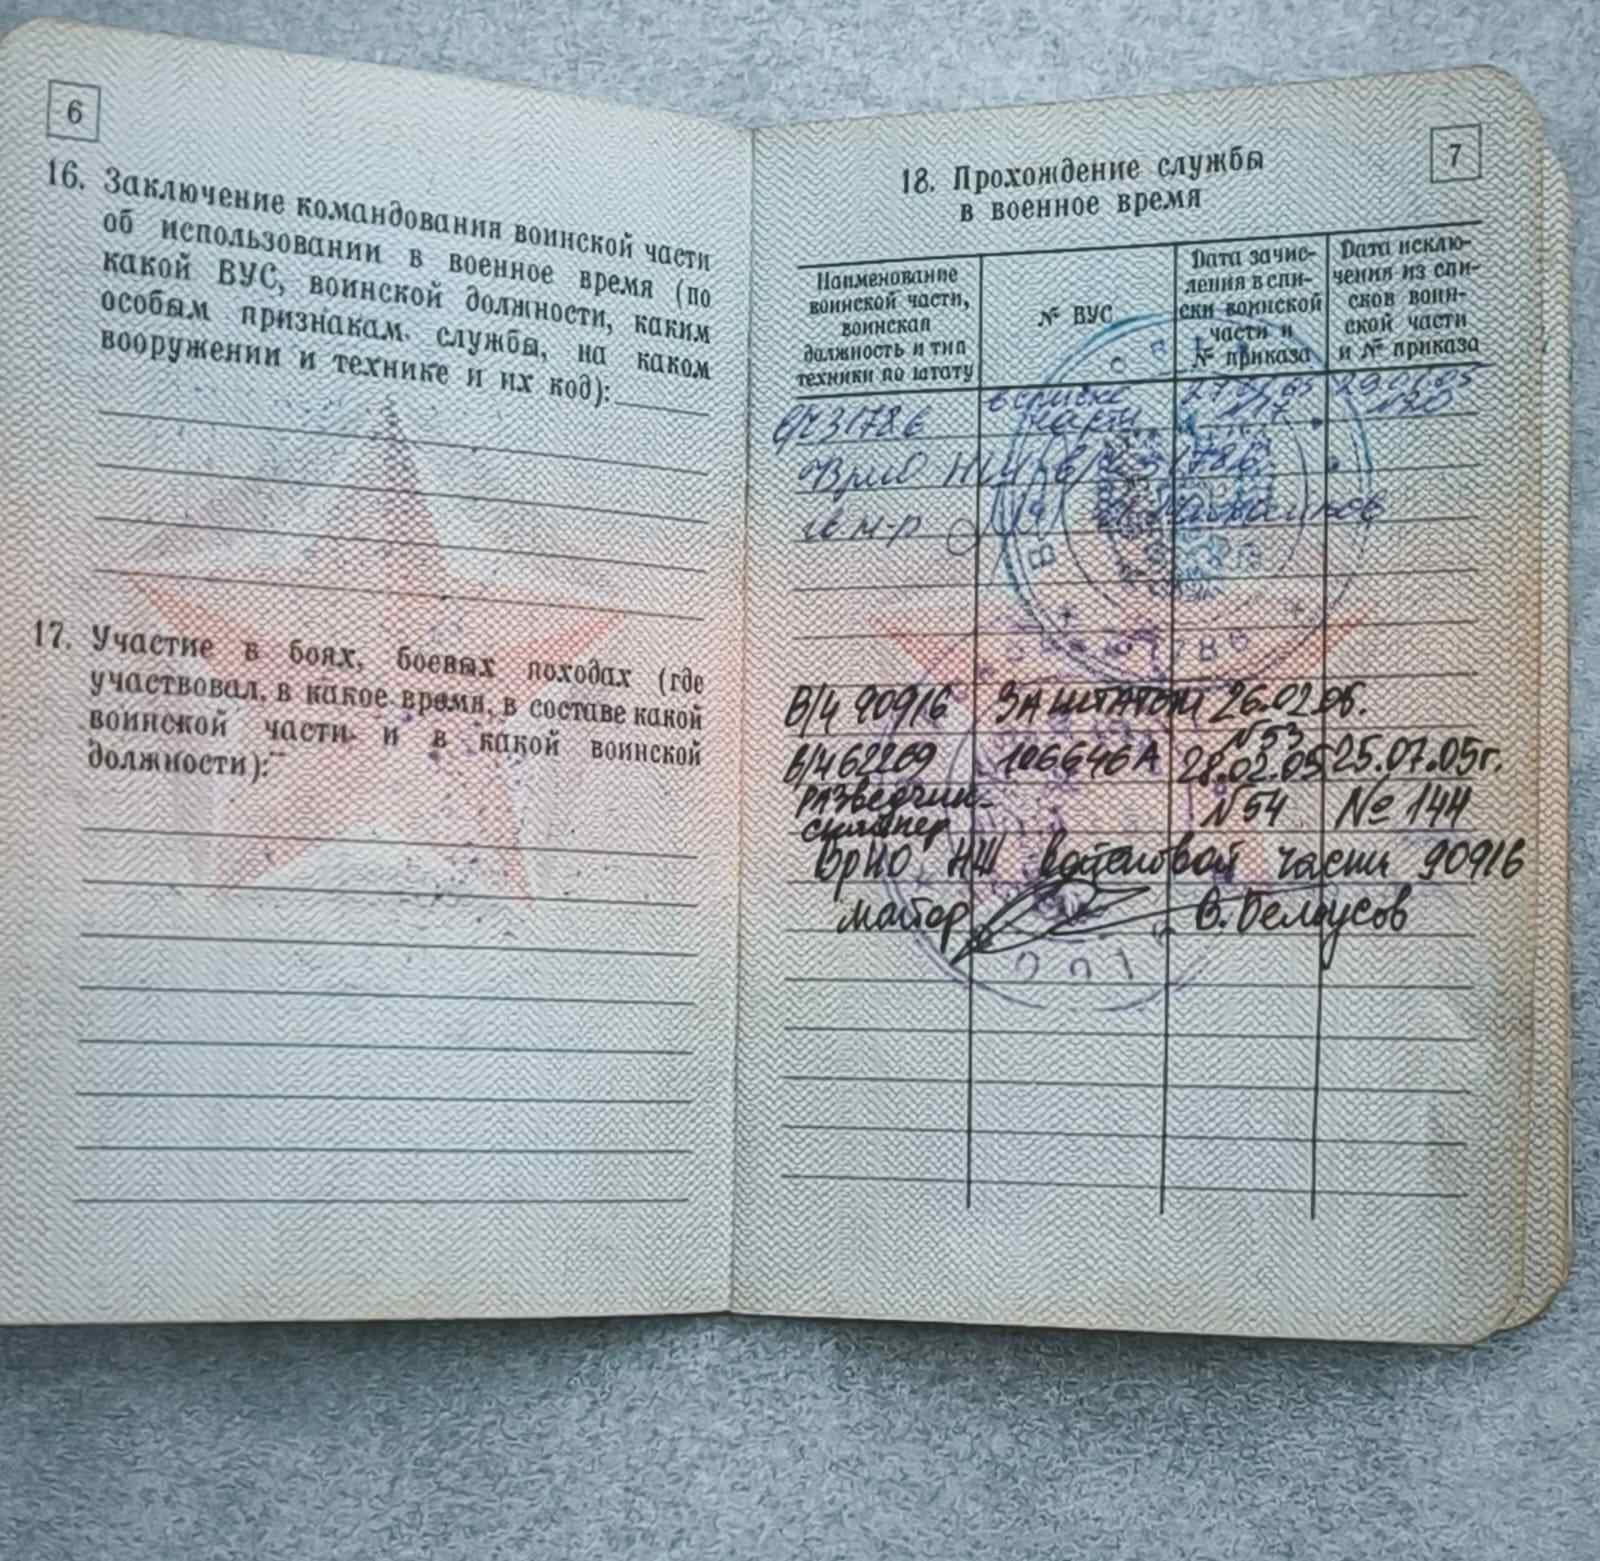 6
16. Заключение командования воинской части
об использовании в военное время (по
какой ВУС, воинской должности, каким
особым признакам службы, на каком
вооружении и технике и их код):
17. Участие в боях, боевых походах (где
участвовал, в какое время, в составе какой
воинской части и в какой воинской
должности):
7
18. Прохождение службы
в военное время
Наименование
воинской части,
воинская
должность и тип
техники по штату
№ ВУС
Дата зачис-
ления в спи-
ски воинской
части и
№ приказа
Дата исклю-
чения из спи-
сков воин-
ской части
и № приказа
в/ч 31786
в списке
части
117
120
Врио НШ в/ч 31786
м-р
В/Ч 90916 ЗА ШТАТОМ 26.02.05.
N53
В/Ч 62269 106646А 28.02.05 25.07.05г.
РАЗВЕДЧИК- N54 № 144
снайпер
ВрИО НШ войсковой части 90916
майор В. Белоусов